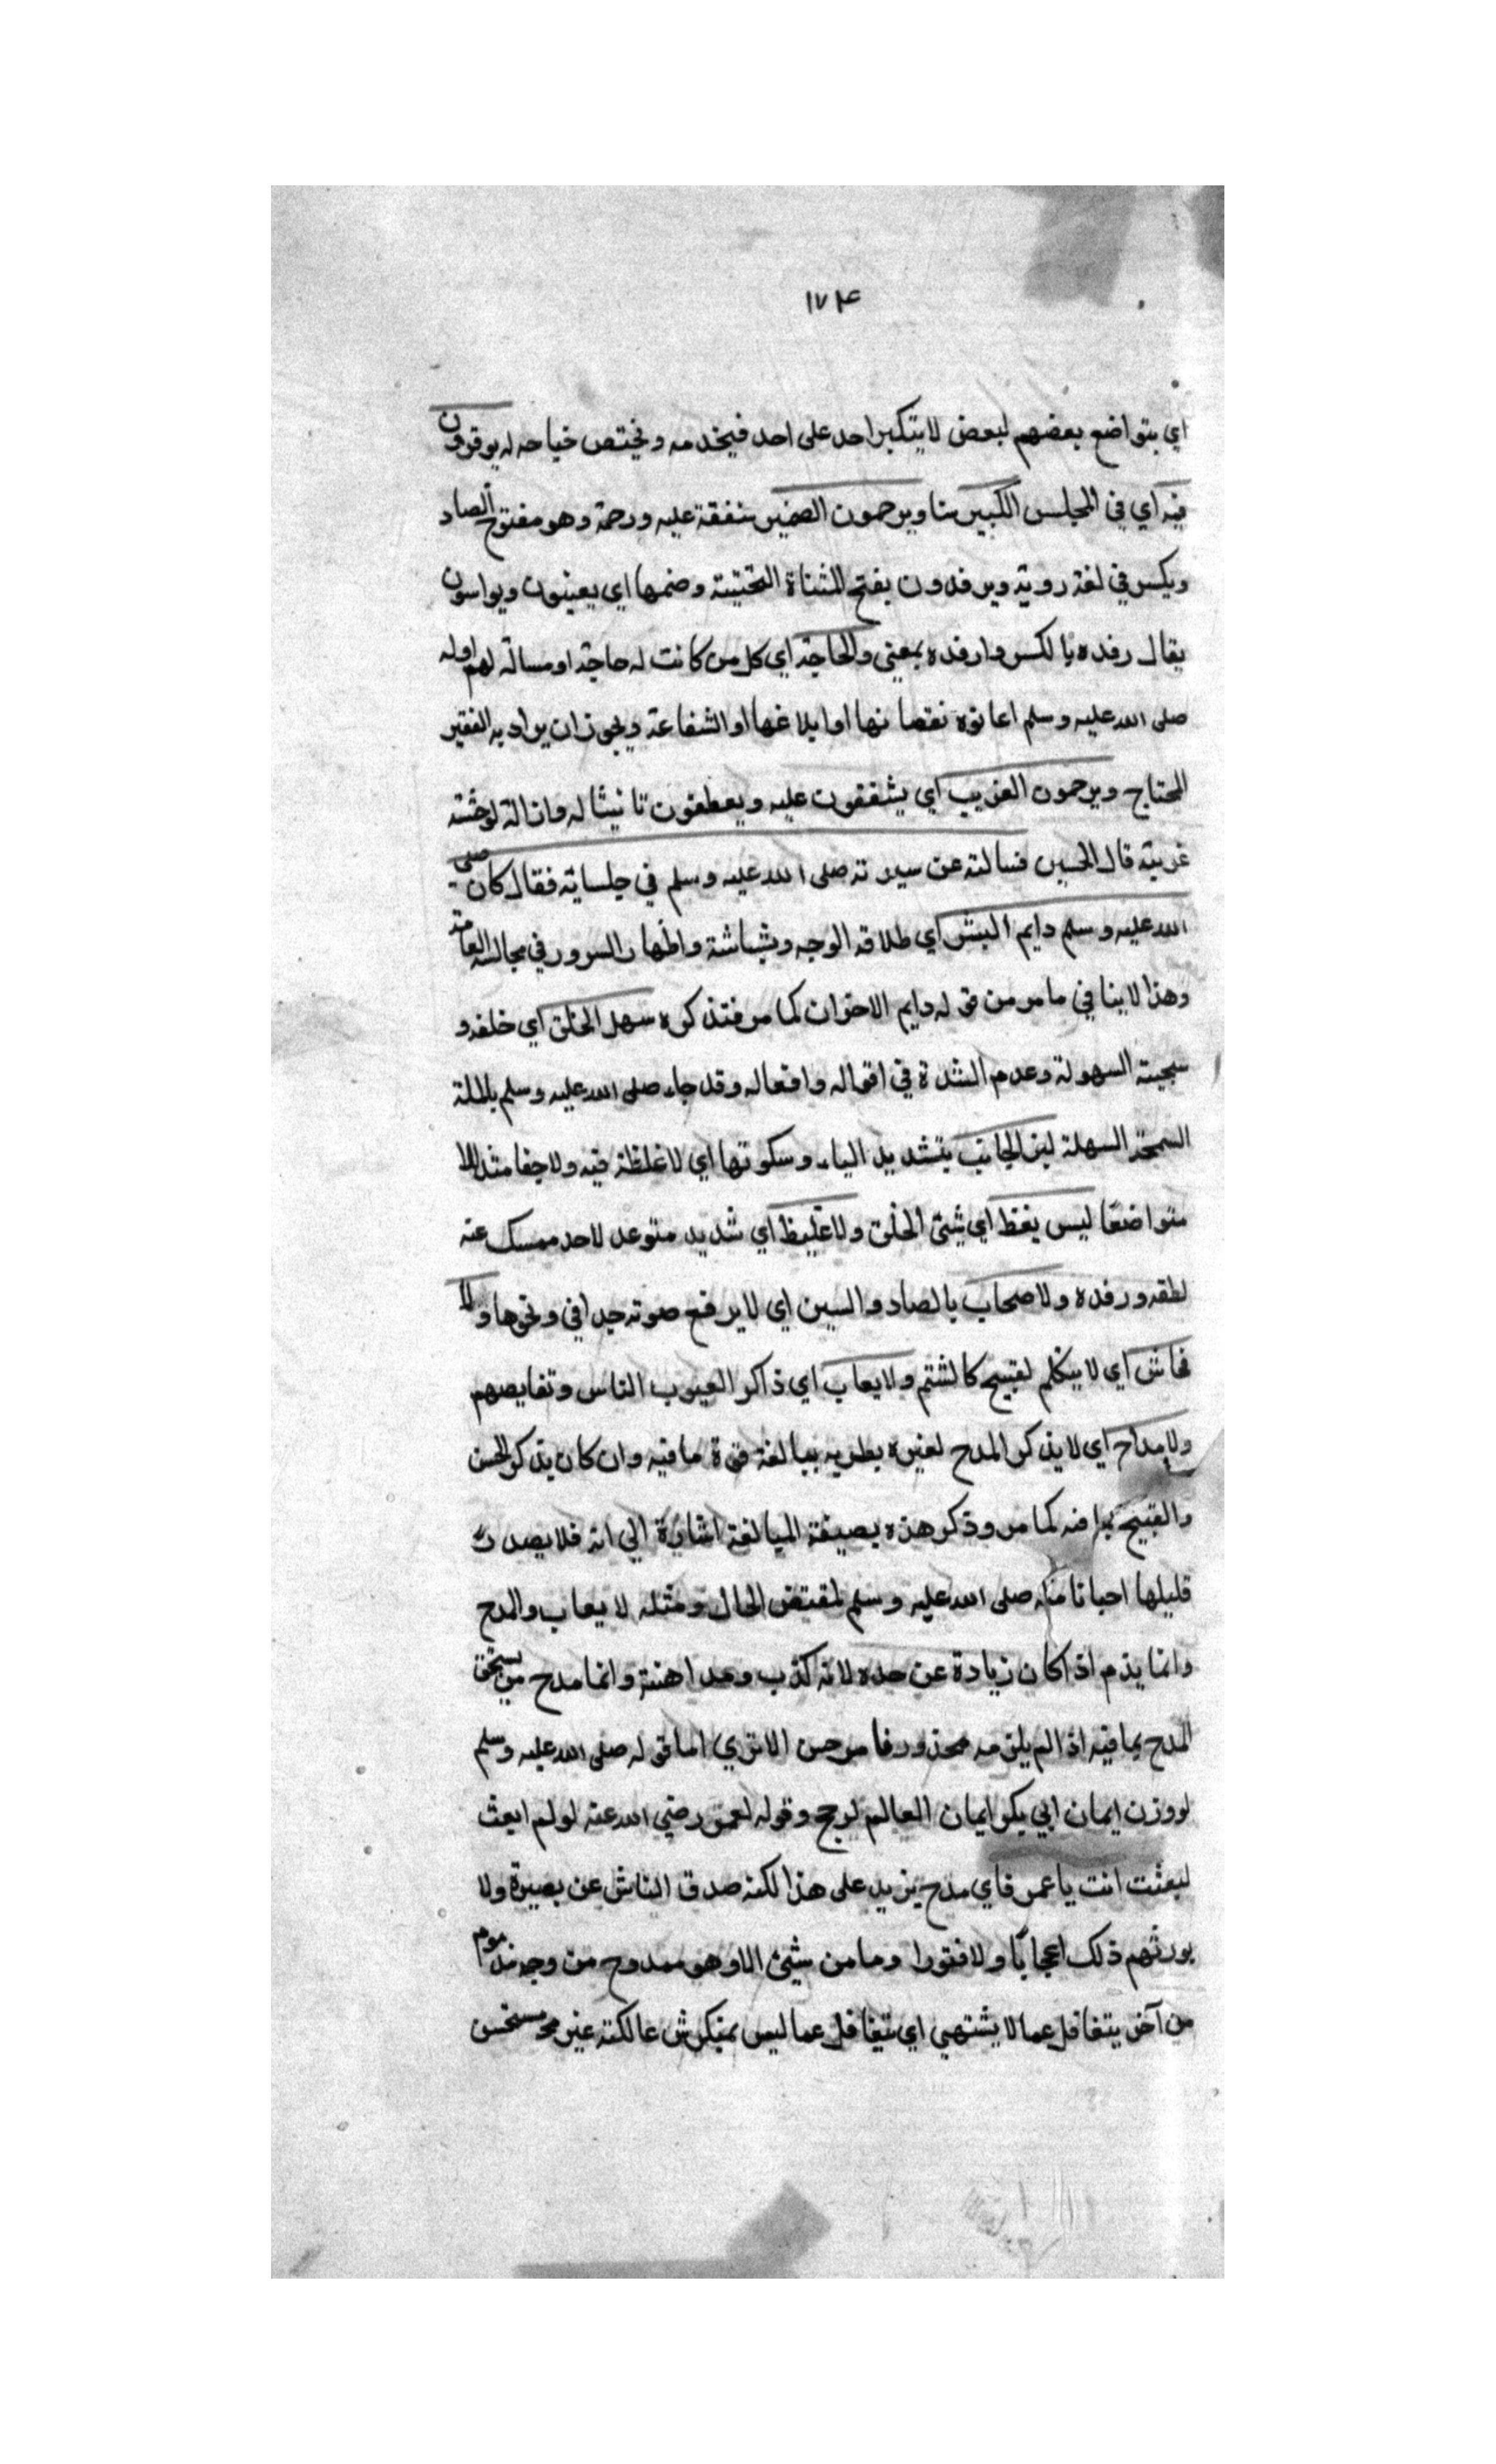 ١٧٤
اي يتواضع بعضهم لبعض لا يتكبر احد على احد فيخدمه ويختص خباحه له يوقرون
فيه اي في المجلس الكبير سنا ويرحمون الصغير شفقة عليه ورحمة وهو مفتوح الصاد
ويكسر في لغة روية ويرفدون بفتح المثناة التحتية وضمها اي يعينون ويواسون
يقال رفده بالكسر وارفده بمعنى والحاجة اي كل من كانت له حاجة او مسالة لهم اوله
صلى الله عليه وسلم اعانوه نقصا نها او ابلاغها او الشفاعة ويجوز ان يراد به الفقير
المحتاج ويرحمون الغريب اي يشفقون عليه ويعطفون تانيثا له وانالة لوحشته
غربته قال الحسين فسالته عن سيرته صلى الله عليه وسلم في جلسايه فقال كان صلى
الله عليه وسلم دايم البشر اي طلاقة الوجه وبشاشة واظهار السرور في مجالسه العامة
وهذا لا ينافي ما مر من قوله دايم الاحزان كما مر فتذكره سهل الخلق اي خلقه و
سجيته السهولة وعدم الشدة في اقواله وافعاله وقد جاء صلى الله عليه وسلم بالملة
السمحة السهلة لين الجانب بتشديد الياء وسكونها اي لا غلظة فيه ولا جفا مثذللا
متواضعا ليس بفظ اي شيئ الخلق ولا غليظ اي شديد متوعد لاحد ممسك عنه
لطفه ورفده ولا صحاب بالصاد والسين اي لا يرفع صوته جدا في ونحوها ولا
فحاش اي لا يتكلم لقبيح كالشتم ولا يعاب اي ذاكر العيوب الناس ونقايصهم
ولا مداح اي لا يذكر المدح لغيره يطريه بمبالغة قوة ما فيه وان كان يذكر الحسن
والقبيح كما مر وذكر هذه بصيغة المبالغة اشارة الي انه فلا يصدر
قليلها احيانا منه صلى الله عليه وسلم لمقتض الحال ومثله لا يعاب والمدح
وانما يذم اذا كان زيادة عن حده لانه كذب ومداهنة وانما مدح من يستحق
المدح بما فيه اذا لم يلزمه محذور فامر حسن الا تري اما قوله صلى الله عليه وسلم
لو وزن ايمان ابي بكر ايمان العالم لرجح وقوله لعمر رضي الله عنه لو لم ابعث
لبعثت انت يا عمر فاي مدح يزيد على هذا لكنه صدق الناش عن بصيرة ولا
يورثهم ذلك اعجابًا ولا فتورا وما من شيئ الا وهو ممدوح من وجه مذموم
من آخر يتغافل عما لا يشتهي اي يتغافل عما ليس بمنكر شرعا لكنه غير مستحسن